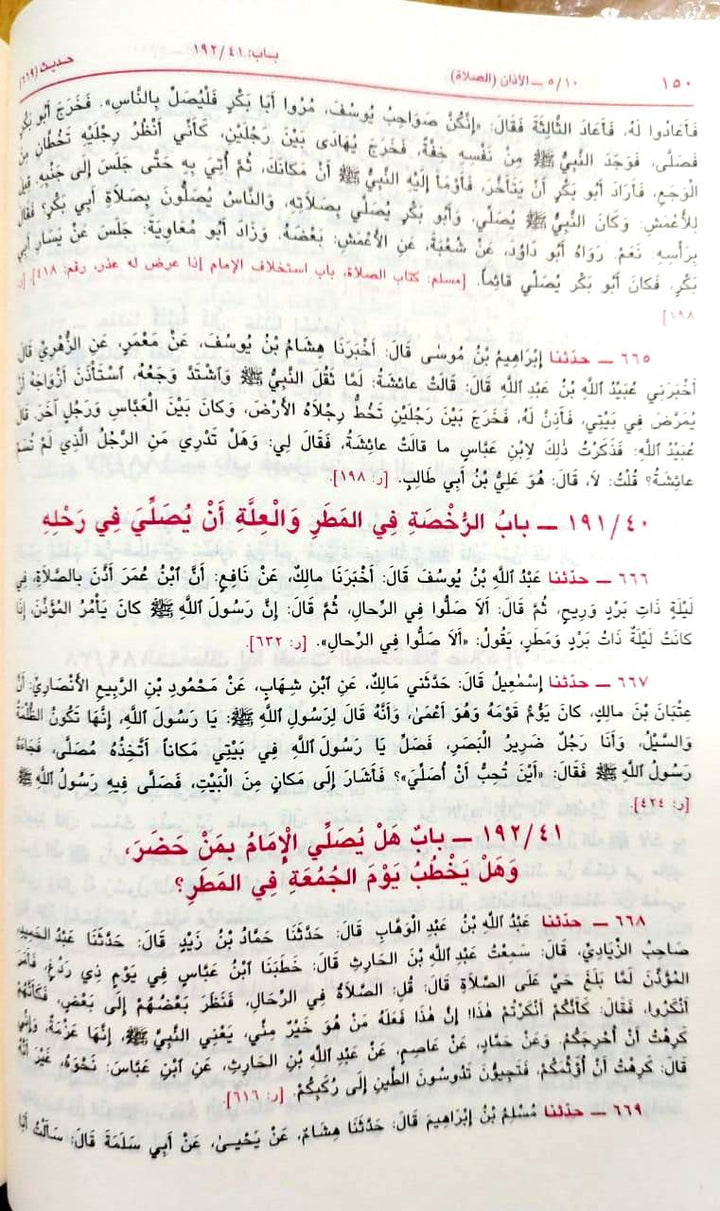 ١٥٠ ١٠/٥ ــ الأذان (الصلاة) باب: ١٩٢/٤١ حديث (٦٦٩)
فَأَعَادُوا لَهُ، فَأَعَادَ الثَّالِثَةَ فَقَالَ: «إِنَّكُنَّ صَوَاحِبُ يُوسُفَ، مُرُوا أَبَا بَكْرٍ فَلْيُصَلِّ بِالنَّاسِ». فَخَرَجَ أَبُو بَكْرٍ
فَصَلَّى، فَوَجَدَ النَّبِيُّ ﷺ مِنْ نَفْسِهِ خِفَّةً، فَخَرَجَ يُهَادَى بَيْنَ رَجُلَيْنِ، كَأَنِّي أَنْظُرُ رِجْلَيْهِ تَخُطَّانِ مِنَ
الْوَجَعِ، فَأَرَادَ أَبُو بَكْرٍ أَنْ يَتَأَخَّرَ، فَأَوْمَأَ إِلَيْهِ النَّبِيُّ ﷺ أَنْ مَكَانَكَ، ثُمَّ أُتِيَ بِهِ حَتَّى جَلَسَ إِلَى جَنْبِهِ. قِيلَ
لِلْأَعْمَشِ: وَكَانَ النَّبِيُّ ﷺ يُصَلِّي، وَأَبُو بَكْرٍ يُصَلِّي بِصَلَاتِهِ، وَالنَّاسُ يُصَلُّونَ بِصَلَاةِ أَبِي بَكْرٍ؟ فَقَالَ
بِرَأْسِهِ: نَعَمْ. رَوَاهُ أَبُو دَاوُدَ، عَنْ شُعْبَةَ، عَنِ الْأَعْمَشِ: بَعْضَهُ. وَزَادَ أَبُو مُعَاوِيَةَ: جَلَسَ عَنْ يَسَارِ أَبِي
بَكْرٍ، فَكَانَ أَبُو بَكْرٍ يُصَلِّي قَائِماً. [مسلم: كتاب الصلاة، باب استخلاف الإمام إذا عرض له عذر، رقم: ٤١٨]. [ر:
١٩٨]
٦٦٥ ــ حدّثنا إِبْرَاهِيمُ بْنُ مُوسَى قَالَ: أَخْبَرَنَا هِشَامُ بْنُ يُوسُفَ، عَنْ مَعْمَرٍ، عَنِ الزُّهْرِيِّ قَالَ:
أَخْبَرَنِي عُبَيْدُ اللَّهِ بْنُ عَبْدِ اللَّهِ قَالَ: قَالَتْ عَائِشَةُ: لَمَّا ثَقُلَ النَّبِيُّ ﷺ وَٱشْتَدَّ وَجَعُهُ، ٱسْتَأْذَنَ أَزْوَاجَهُ أَنْ
يُمَرَّضَ فِي بَيْتِي، فَأَذِنَّ لَهُ، فَخَرَجَ بَيْنَ رَجُلَيْنِ تَخُطُّ رِجْلَاهُ الْأَرْضَ، وَكَانَ بَيْنَ الْعَبَّاسِ وَرَجُلٍ آخَرَ. قَالَ
عُبَيْدُ اللَّهِ: فَذَكَرْتُ ذٰلِكَ لِابْنِ عَبَّاسٍ مَا قَالَتْ عَائِشَةُ، فَقَالَ لِي: وَهَلْ تَدْرِي مَنِ الرَّجُلُ الَّذِي لَمْ تُسَمِّ
عَائِشَةُ؟ قُلْتُ: لَا، قَالَ: هُوَ عَلِيُّ بْنُ أَبِي طَالِبٍ. [ر: ١٩٨].
١٩١/٤٠ ــ بابُ الرُّخْصَةِ فِي المَطَرِ وَالْعِلَّةِ أَنْ يُصَلِّيَ فِي رَحْلِهِ
٦٦٦ ــ حدّثنا عَبْدُ اللَّهِ بْنُ يُوسُفَ قَالَ: أَخْبَرَنَا مَالِكٌ، عَنْ نَافِعٍ: أَنَّ ٱبْنَ عُمَرَ أَذَّنَ بِالصَّلَاةِ، فِي
لَيْلَةٍ ذَاتِ بَرْدٍ وَرِيحٍ، ثُمَّ قَالَ: أَلَا صَلُّوا فِي الرِّحالِ، ثُمَّ قَالَ: إِنَّ رَسُولَ اللَّهِ ﷺ كانَ يَأْمُرُ المُؤَذِّنَ، إِذَا
كانَتْ لَيْلَةٌ ذَاتُ بَرْدٍ وَمَطَرٍ، يَقُولُ: «أَلَا صَلُّوا فِي الرِّحالِ». [ر: ٦٣٢].
٦٦٧ ــ حدّثنا إِسْمٰعِيلُ قَالَ: حَدَّثَنِي مَالِكٌ، عَنِ ٱبْنِ شِهَابٍ، عَنْ مَحْمُودِ بْنِ الرَّبِيعِ الْأَنْصَارِيِّ: أَنَّ
عِتْبَانَ بْنَ مَالِكٍ، كانَ يَؤُمُّ قَوْمَهُ وَهُوَ أَعْمَىٰ، وَأَنَّهُ قَالَ لِرَسُولِ اللَّهِ ﷺ: يَا رَسُولَ اللَّهِ، إِنَّهَا تَكُونُ الظُّلْمَةُ
وَالسَّيْلُ، وَأَنَا رَجُلٌ ضَرِيرُ الْبَصَرِ، فَصَلِّ يَا رَسُولَ اللَّهِ فِي بَيْتِي مَكاناً أَتَّخِذُهُ مُصَلًّى، فَجَاءَهُ
رَسُولُ اللَّهِ ﷺ فَقَالَ: «أَيْنَ تُحِبُّ أَنْ أُصَلِّيَ»؟ فَأَشَارَ إِلَى مَكانٍ مِنَ الْبَيْتِ، فَصَلَّى فِيهِ رَسُولُ اللَّهِ ﷺ.
[ر: ٤٢٤].
١٩٢/٤١ ــ بابٌ هَلْ يُصَلِّي الْإِمَامُ بِمَنْ حَضَرَ،
وَهَلْ يَخْطُبُ يَوْمَ الجُمُعَةِ فِي المَطَرِ؟
٦٦٨ ــ حدّثنا عَبْدُ اللَّهِ بْنُ عَبْدِ الْوَهَّابِ قَالَ: حَدَّثَنَا حَمَّادُ بْنُ زَيْدٍ قَالَ: حَدَّثَنَا عَبْدُ الحَمِيدِ،
صَاحِبُ الزِّيَادِيِّ، قَالَ: سَمِعْتُ عَبْدَ اللَّهِ بْنَ الحَارِثِ قَالَ: خَطَبَنَا ٱبْنُ عَبَّاسٍ فِي يَوْمٍ ذِي رَدْغٍ، فَأَمَرَ
المُؤَذِّنَ لَمَّا بَلَغَ حَيَّ عَلَى الصَّلَاةِ قَالَ: قُلِ: الصَّلَاةُ فِي الرِّحالِ، فَنَظَرَ بَعْضُهُمْ إِلَى بَعْضٍ، فَكَأَنَّهُمْ
أَنْكَرُوا، فَقَالَ: كَأَنَّكُمْ أَنْكَرْتُمْ هٰذَا! إِنَّ هٰذَا فَعَلَهُ مَنْ هُوَ خَيْرٌ مِنِّي، يَعْنِي النَّبِيَّ ﷺ، إِنَّهَا عَزْمَةٌ، وَإِنِّي
كَرِهْتُ أَنْ أُحْرِجَكُمْ. وَعَنْ حَمَّادٍ، عَنْ عَاصِمٍ، عَنْ عَبْدِ اللَّهِ بْنِ الحَارِثِ، عَنِ ٱبْنِ عَبَّاسٍ: نَحْوَهُ، غَيْرَ أَنَّهُ
قَالَ: كَرِهْتُ أَنْ أُؤَثِّمَكُمْ، فَتَجِيؤُنَ تَدُوسُونَ الطِّينَ إِلَى رُكَبِكُمْ. [ر: ٦١٦].
٦٦٩ ــ حدّثنا مُسْلِمُ بْنُ إِبْرَاهِيمَ قَالَ: حَدَّثَنَا هِشَامٌ، عَنْ يَحْيىٰ، عَنْ أَبِي سَلَمَةَ قَالَ: سَأَلْتُ أَبَا